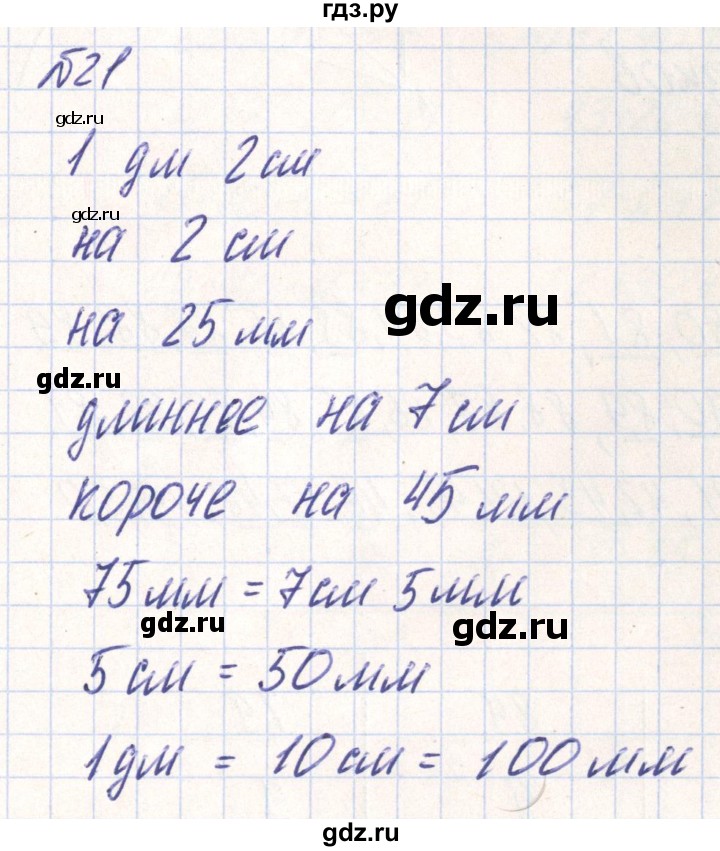 гдз.ру
№21
gdz.ru
1 дм 2 см
gdz.ru
на 2 см
gdz.ru
на 25 мм
gdz.ru
длиннее на 7 см
короче на 45 мм
75 мм = 7 см 5 мм
gdz.ru
gdz.ru
5 см = 50 мм
1 дм = 10 см = 100 мм
gdz.ru